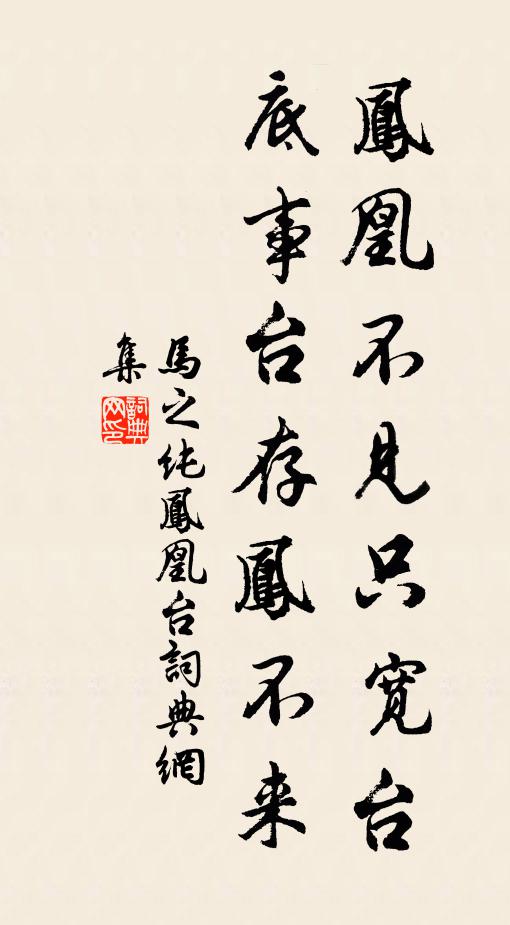 鳳凰不見只寬台
底事台存鳳不来
馬之純鳳凰台詞典網
集
詞典
网印